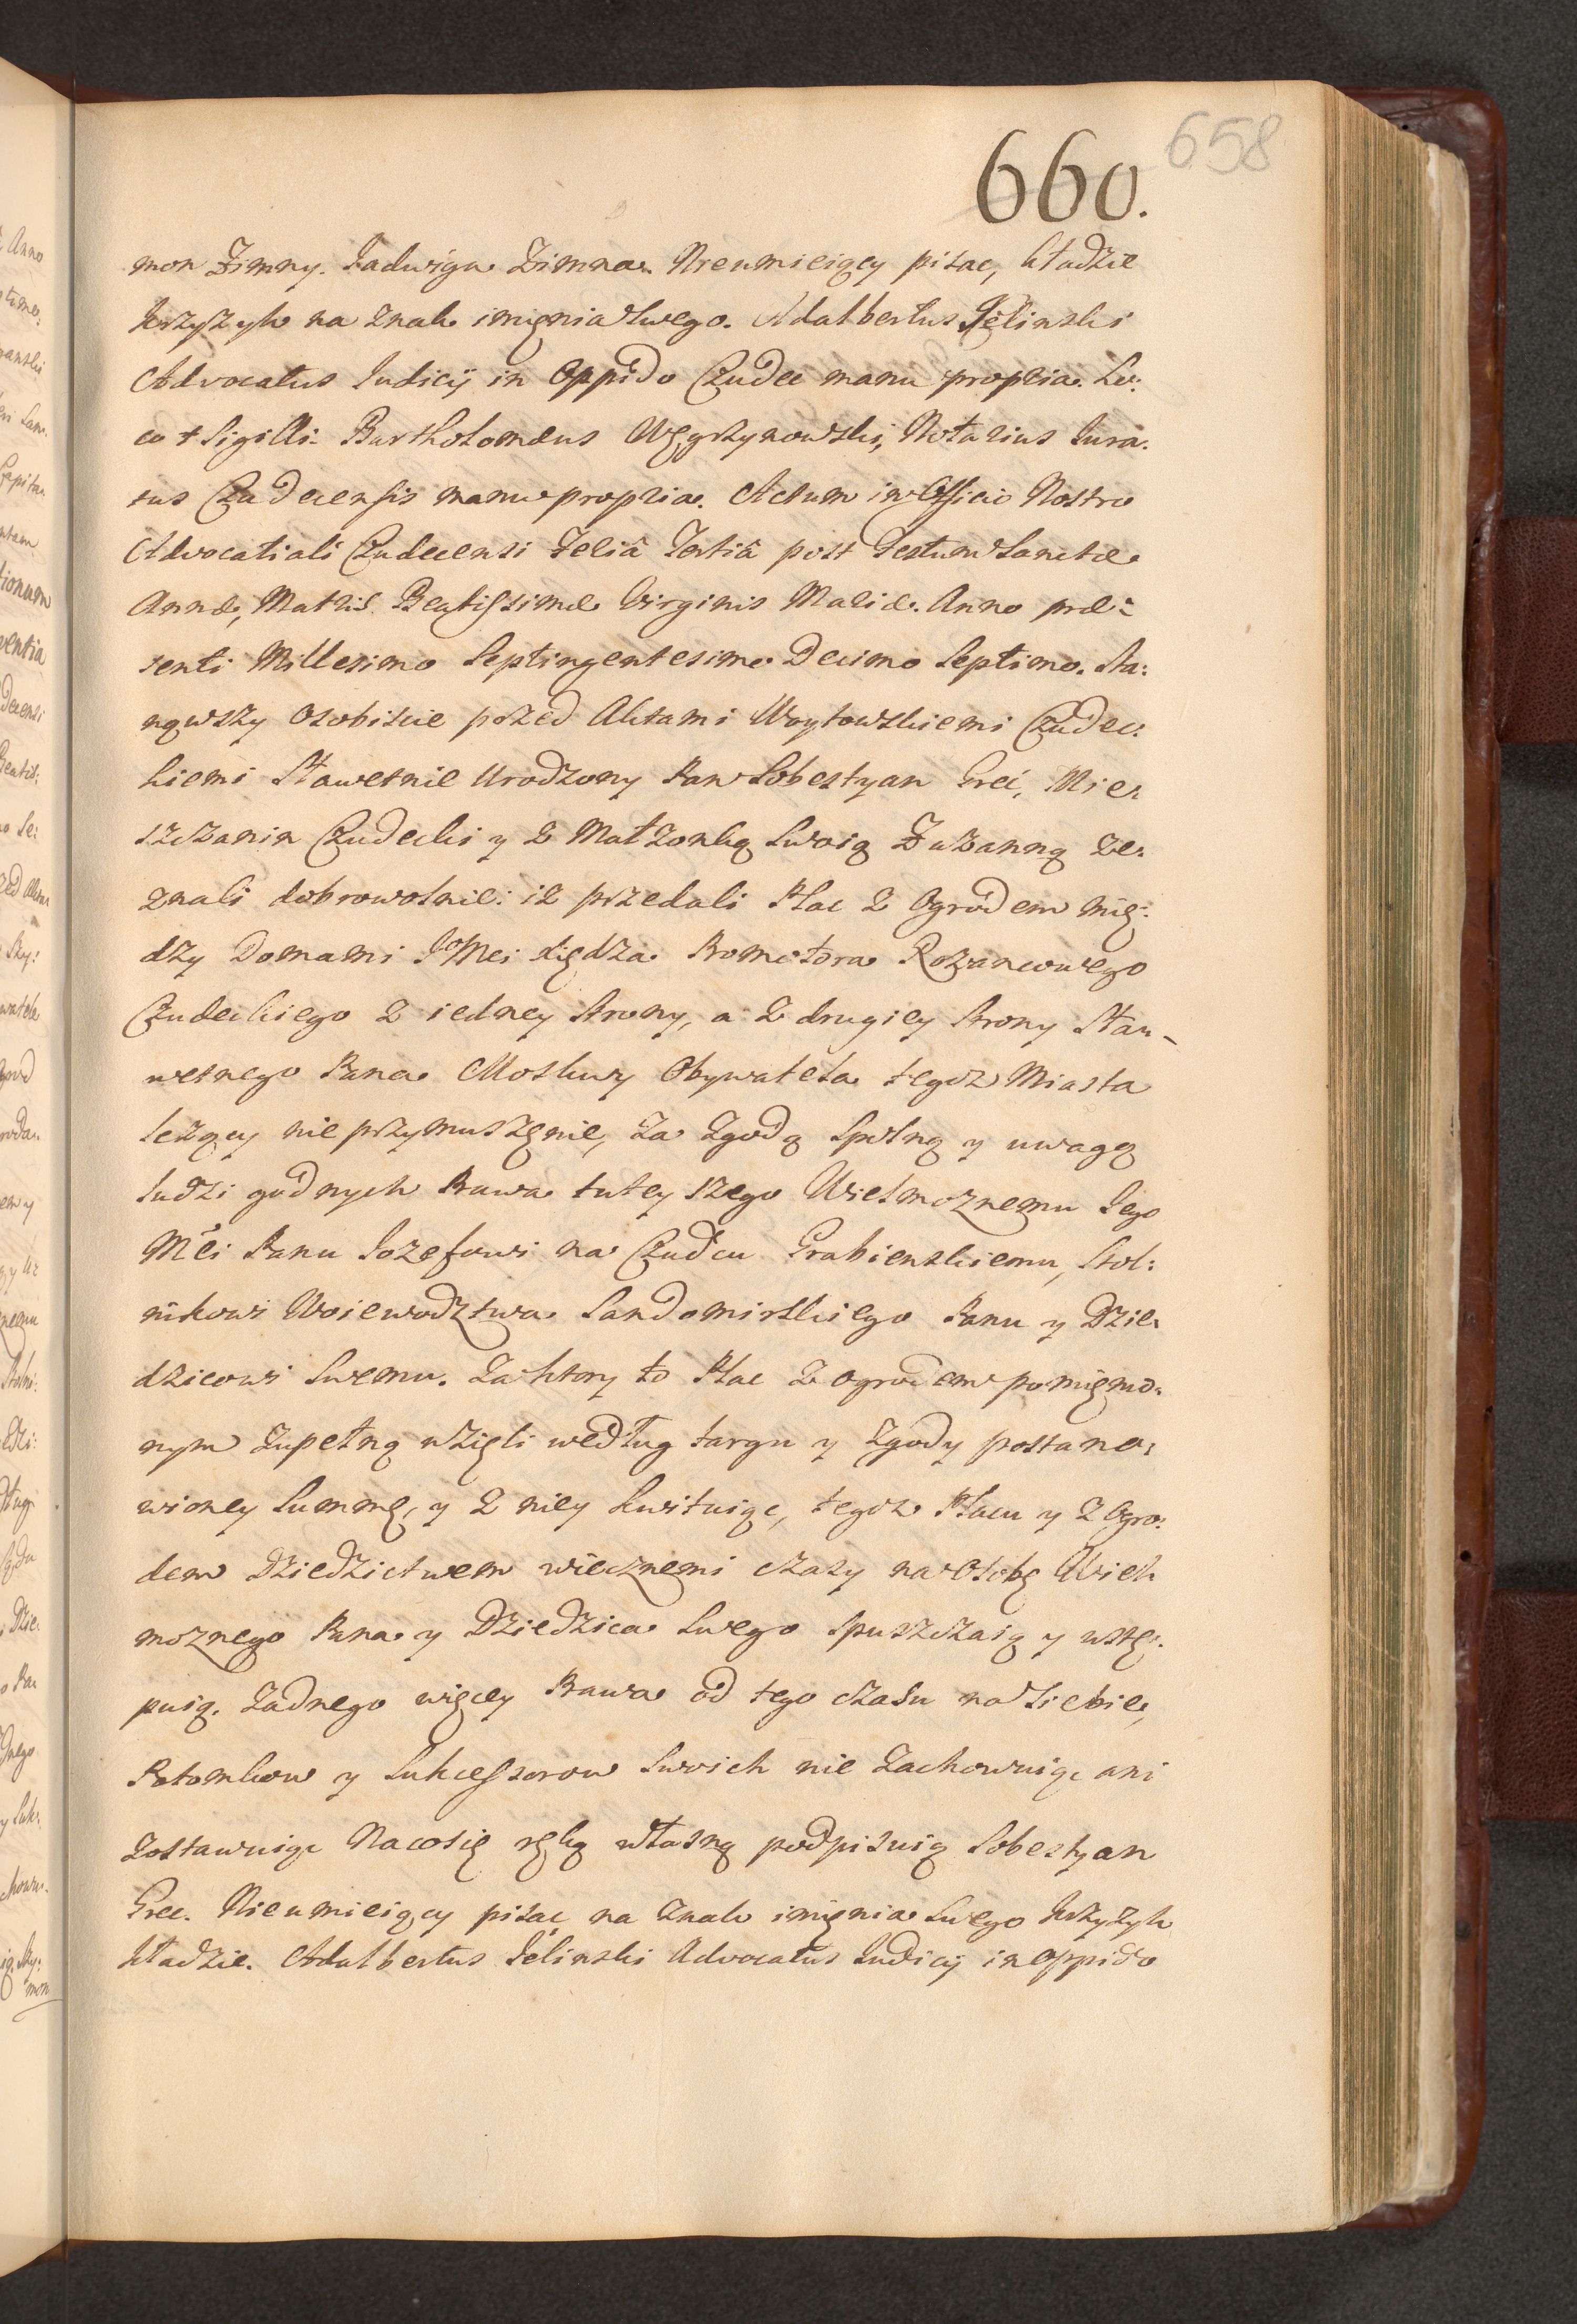 660. 658
mon Zimny. Jadwiga Zimna. Nieumieiący pisac, kładzie
krzyzyk na znak imięnia swego. Adalbertus Jeliński
Advocatus Iudicij in Oppido Czudec manu propria. Lo:
co + Sigilli. Bartholomæus Węgrzynowski, Notarius Iura:
tus Czudecensis manu propria. Actum in Officio Nostro
Advocatiali Czudecensi Feriâ Tertiâ post Festum Sanctæ
Annæ, Matris Beatissimæ Virginis Mariæ. Anno præ:
senti Millesimo Septingentesimo Decimo Septimo. Sta:
nąwszy osobiscie przed Aktami Woytowskiemi Czudec:
kiemi Sławetnie Urodzony Pan Sobestyan Grec, Mie:
szczanin Czudecki y z Małzonką Swoią Zuzanną ze:
znali dobrowolnie: iz przedali Plac z Ogrodem mię:
dzy Domami JoMci Xiędza Promotora Rozancowego
Czudeckiego z iedney strony, a z drugiey strony Sła-
wetnego Pana Moskwy Obywatela tegoz Miasta
lezący nie przymuszęnie, za zgodą spolną y uwagą
ludzi godnych Prawa tuteyszego Wielmoznemu Jego
Mći Panu Jozefowi na Czudcu Grabienskiemu, Stol:
nikowi Woiewodztwa Sandomirskiego Panu y Dzie:
dzicowi swemu. Za ktory to Plac z ogrodem pomięnio:
nym zupełną wzięli według targu y zgody postano:
wioney Summę, y z niey kwituiąc, tegoz Placu y z Ogro:
dem Dziedzictwem wiecznemi czasy na Osobę Wiel:
moznego Pana y Dziedzica Swego spuszczaią y ustę:
puią. Zadnego więcey Prawa od tego czasu na siebie,
Potomkow y Sukcessorow swoich nie zachowuiąc ani
zostawuiąc Na co się ręką własną podpisuią Sobestyan
Grec. Nieumieiący pisac na znak imięnia swego krzyzyk
kładzie. Adalbertus Jeliński Advocatus Iudicij in Oppido